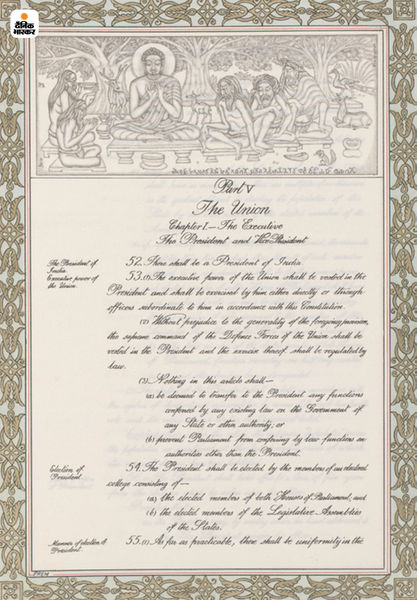 दैनिक
भास्कर
Part V
The Union
Chapter I—The Executive
The President and Vice-President
The President of
India.
52. There shall be a President of India.
Executive power of
the Union.
53. (1) The executive power of the Union shall be vested in the
President and shall be exercised by him either directly or through
officers subordinate to him in accordance with this Constitution.
(2) Without prejudice to the generality of the foregoing provision,
the supreme command of the Defence Forces of the Union shall be
vested in the President and the exercise thereof shall be regulated by
law.
(3) Nothing in this article shall—
(a) be deemed to transfer to the President any functions
conferred by any existing law on the Government of
any State or other authority; or
(b) prevent Parliament from conferring by law functions on
authorities other than the President.
Election of
President.
54. The President shall be elected by the members of an electoral
college consisting of—
(a) the elected members of both Houses of Parliament; and
(b) the elected members of the Legislative Assemblies
of the States.
Manner of election of
President.
55. (1) As far as practicable, there shall be uniformity in the
PREM